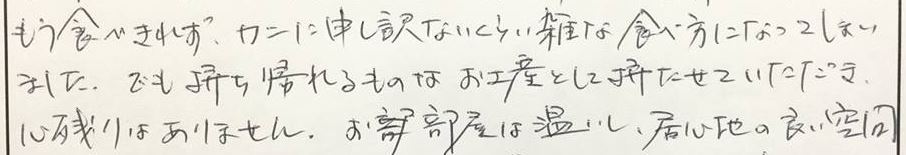 もう食べきれず、カニに申し訳ないくらい雑な食べ方になってしまい
ました。でも持ち帰れるものはお土産として持たせていただき、
心残りはありません。お部屋は温いし、居心地の良い空間